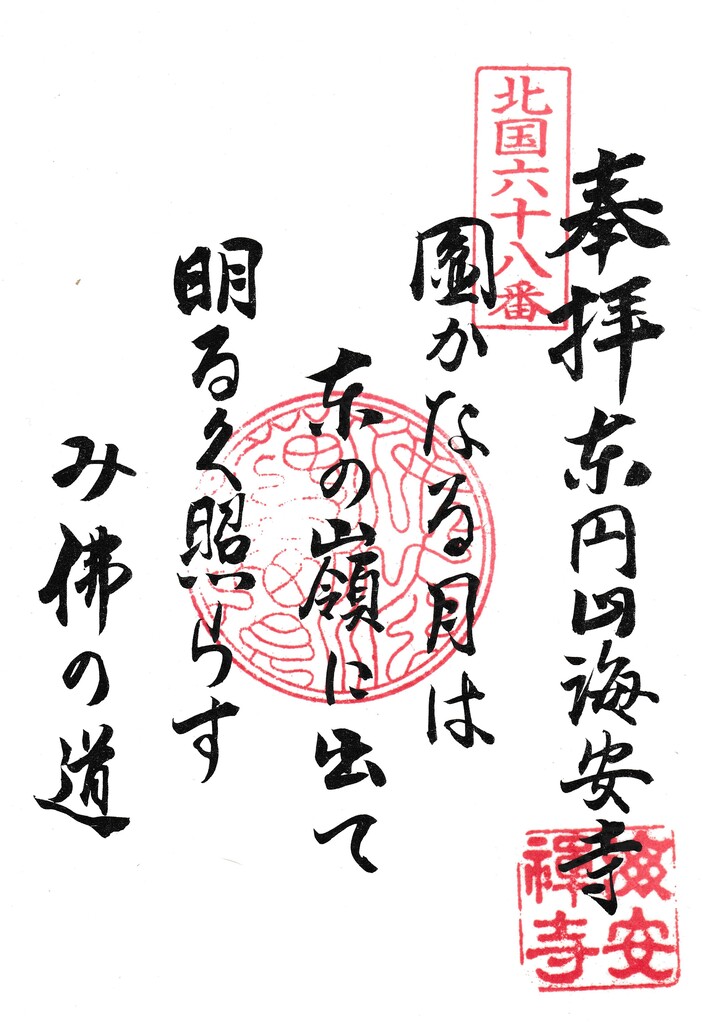 北国六十八番
奉拝 東円山海安寺
圓かなる月は
東の嶺に出て
明る久照らす
み佛の道
海安
禪寺